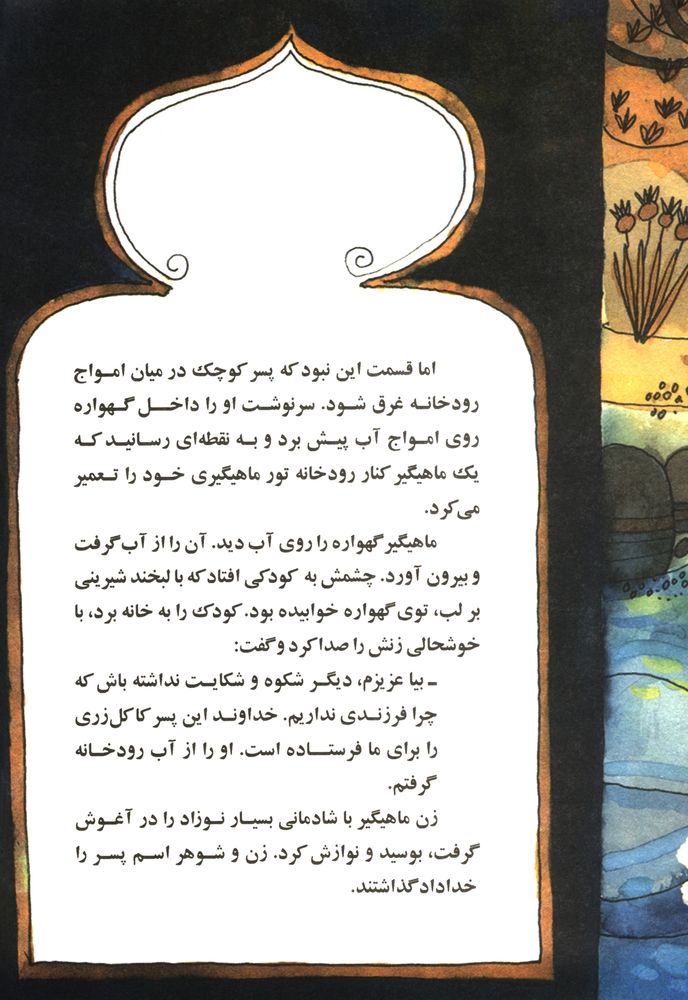 اما قسمت این نبود که پسر کوچک در میان امـواج
رودخانـه غرق شود. سرنوشت او را داخـل گـهواره
روی امـواج آب پیـش برد و بـه نقطه‌ای رسانیـد کـه
یك ماهیگیر کنار رودخانه تور ماهیگیری خـود را تـعمیر
می‌کرد.
ماهیگیر گهواره را روی آب دید. آن را از آب گرفت
و بیرون آورد. چشمش به کودکی افتاد که با لبخند شیرینی
بر لب، توی گهواره خوابیده بود. کودك را به خانه برد، با
خوشحالی زنش را صدا کرد و گفت:
ـ بیا عزیزم، دیگـر شکوه و شکایـت نداشته باش که
چرا فرزنـدی نداریـم. خداونـد این پسر کاکل‌زری
را برای ما فرستـاده است. او را از آب رودخـانه
گرفتم.
زن ماهیگیر با شادمانی بسیار نـوزاد را در آغـوش
گرفت، بوسید و نوازش کرد. زن و شـوهر اسـم پسـر را
خداداد گذاشتند.